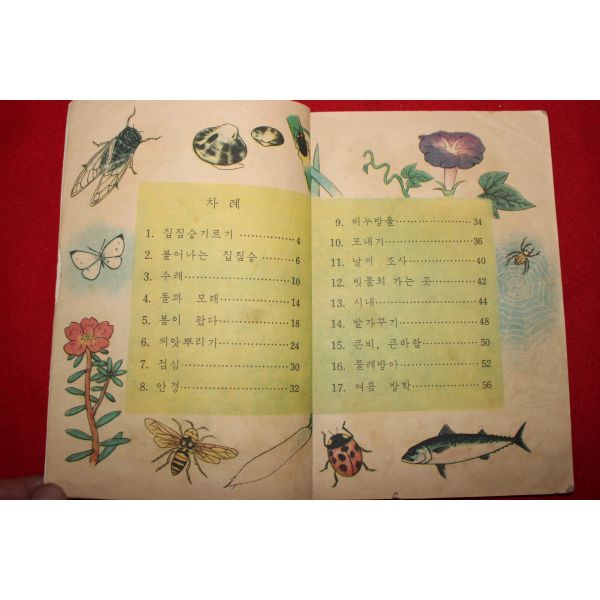 차 례
1. 집짐승기르기 4
2. 불어나는 집짐승 6
3. 수레 10
4. 돌과 모래 14
5. 봄이 왔다 18
6. 씨앗뿌리기 24
7. 점심 30
8. 안경 32
9. 비누방울 34
10. 모내기 36
11. 날씨 조사 40
12. 빗물의 가는 곳 42
13. 시내 44
14. 밭가꾸기 48
15. 큰비, 큰바람 50
16. 물레방아 52
17. 여름 방학 56